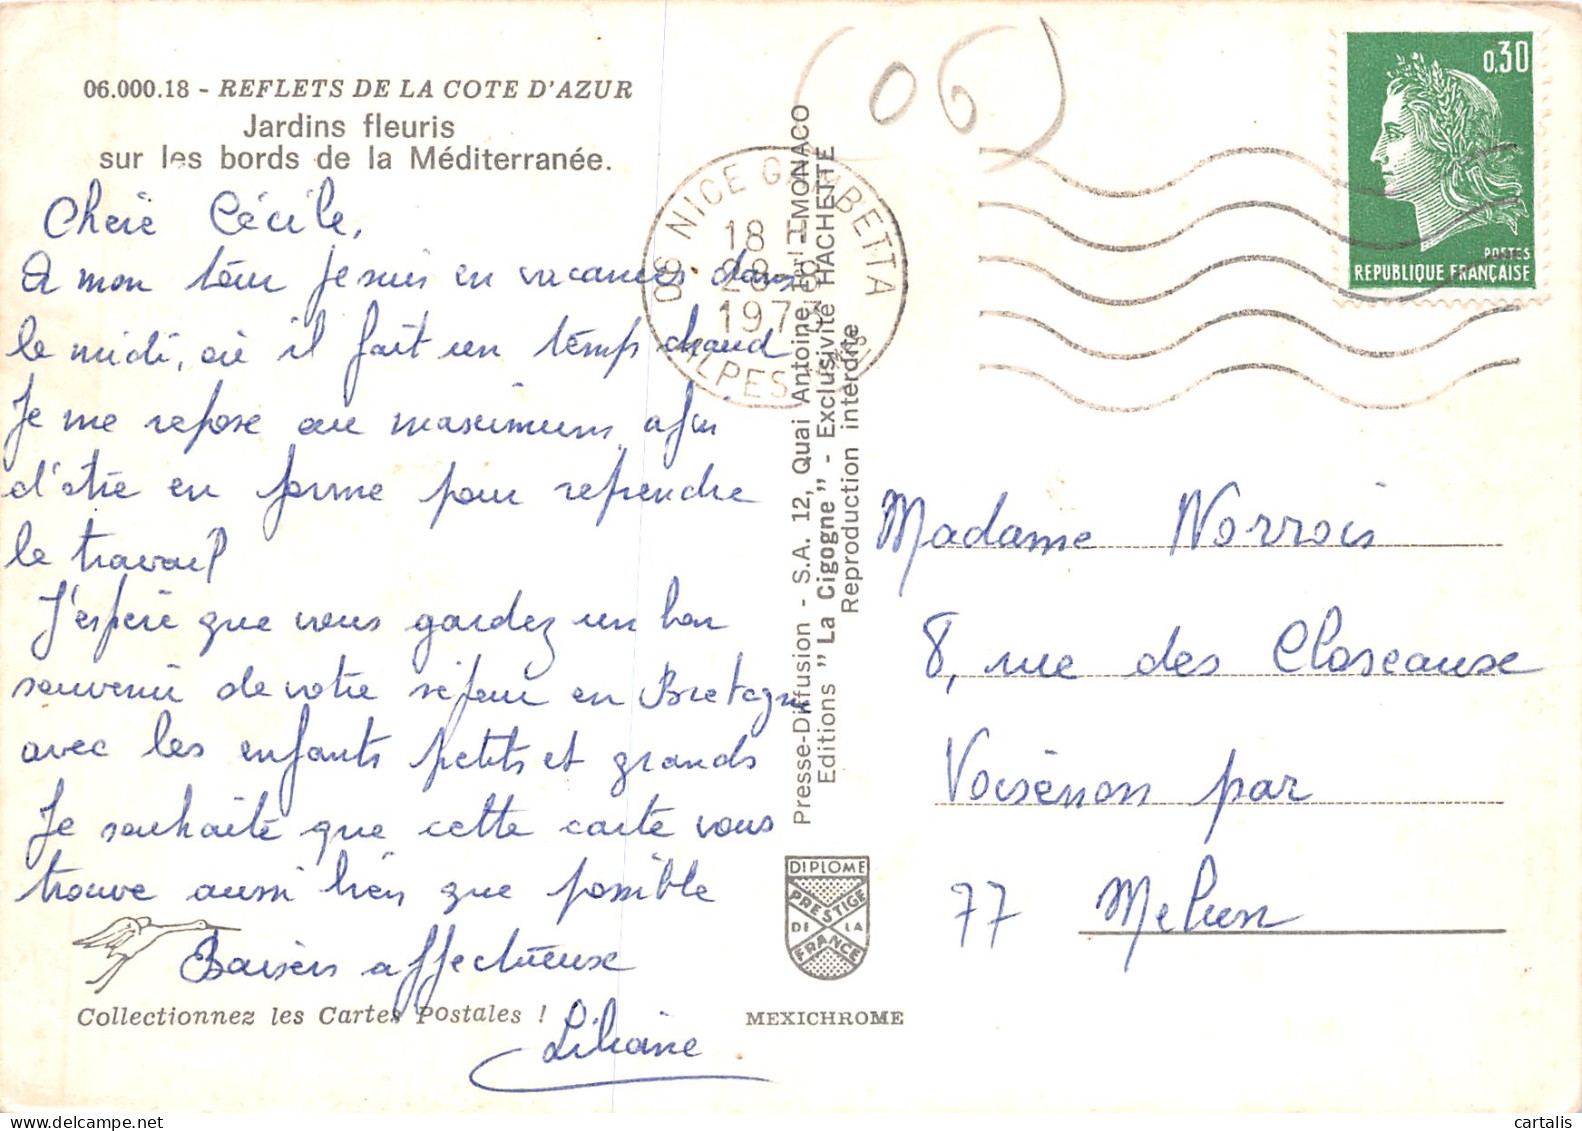 06.000.18 - REFLETS DE LA COTE D'AZUR
Jardins fleuris
sur les bords de la Méditerranée.
Cherè Cécile,
A mon tour je suis en vacances dans
le midi, où il fait un temps chaud
Je me repose au maximum afin
d'être en forme pour reprendre
le travail
J'espère que vous gardez un bon
souvenir de votre séjour en Bretagne
avec les enfants petits et grands
Je souhaite que cette carte vous
trouve aussi bien que possible
Baisers affectueuse
Liliane
Collectionnez les Cartes Postales !
Presse-Diffusion - S.A. 12, Quai Antoine 1er - MONACO
Editions "La Cigogne" - Exclusivité HACHETTE
Reproduction interdite
DIPLOME
PRESTIGE
DE LA
FRANCE
MEXICHROME
(06)
06 NICE GAMBETTA
18 H
28-8
197
ALPES
0,30
POSTES
REPUBLIQUE FRANÇAISE
Madame Norrois
8, rue des Closeause
Voisenon par
77 Melun
cartalis